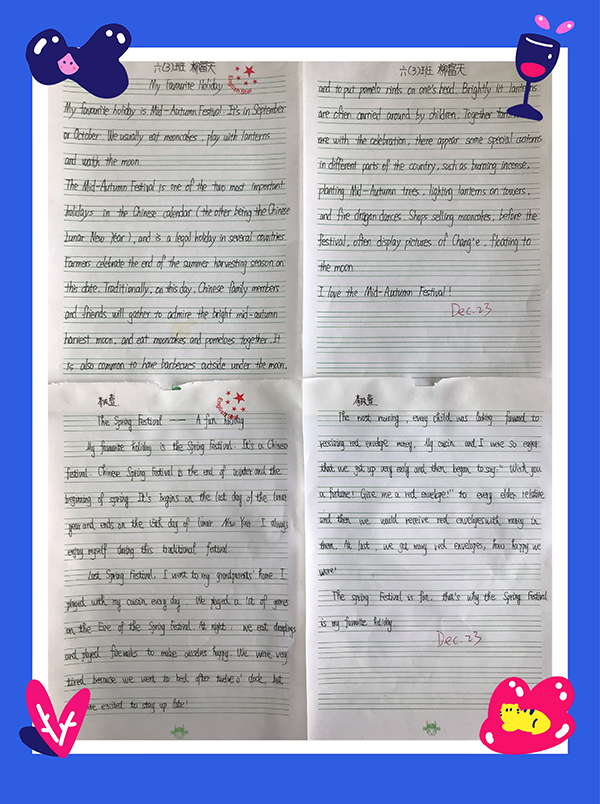 六(3)班 柳富天
My Favourite Holiday
My favourite holiday is Mid-Autumn Festival. It's in September
or October. We usually eat mooncakes, play with lanterns
and watch the moon.
The Mid-Autumn Festival is one of the two most important
holidays in the Chinese calendar (the other being the Chinese
Lunar New Year), and is a legal holiday in several countries.
Farmers celebrate the end of the summer harvesting season on
this date. Traditionally, on this day, Chinese family members
and friends will gather to admire the bright mid-autumn
harvest moon, and eat mooncakes and pomeloes together. It
is also common to have barbecues outside under the moon,
六(3)班 柳富天
and to put pomelo rinds on one's head. Brightly lit lanterns
are often carried around by children. Together
are with the celebration, there appear some special customs
in different parts of the country, such as burning incense,
planting Mid-Autumn trees, lighting lanterns on towers,
and fire dragon dances. Shops selling mooncakes, before the
festival, often display pictures of Chang'e, floating to
the moon
I love the Mid-Autumn Festival!
Dec.23
The Spring Festival —— A fun holiday
My favorite holiday is the Spring Festival. It's a Chinese
festival. Chinese Spring Festival is the end of winter and the
beginning of spring. It's begins on the last day of the lunar
year and ends on the 15th day of lunar New Year. I always
enjoy myself during this traditional festival.
Last Spring Festival, I went to my grandparents' home. I
played with my cousin every day. We played a lot of games
on the Eve of the Spring Festival. At night, we eat dumplings
and played fireworks to make ourselves happy. We were very
tired because we went to bed after twelve o' clock, but
were excited to stay up late!
The next morning, every child was looking forward to
receiving red envelope money. My cousin and I were so eager
that we got up very early and then began to say: "Wish you
a fortune! Give me a red envelope!" to every elder relative
and then we would receive red envelopes with money in
them. At last, we got many red envelopes, how happy we
were!
The spring Festival is fun, that's why the Spring Festival
is my favorite holiday.
Dec.23